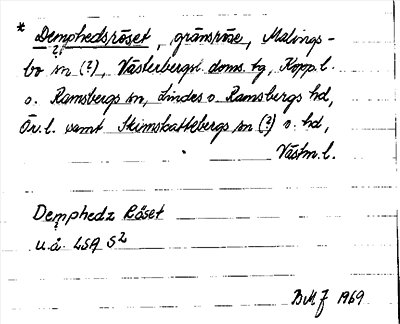 * Demphedsröset, gränsröse, Malings-
bo sn (?), Västerbergsl. doms. tg, Kopp. l.
o. Ramsbergs sn, Lindes o Ramsbergs hd,
Ör. l. samt Skinnskattebergs sn (?) o. hd,
Västm. l.
Demphedz Röset
u.å. LSA S2
BMJ 1969